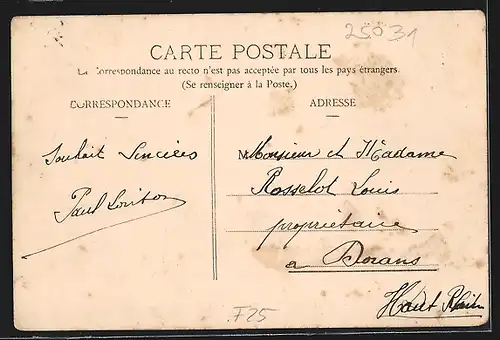 25031
CARTE POSTALE
La Correspondance au recto n'est pas acceptée par tous les pays étrangers.
(Se renseigner à la Poste.)
CORRESPONDANCE
ADRESSE
Souhait Sincères
Paul
Monsieur et Madame
Rosselot Louis
propriétaire
a Dorans
Haut Rhin
F25